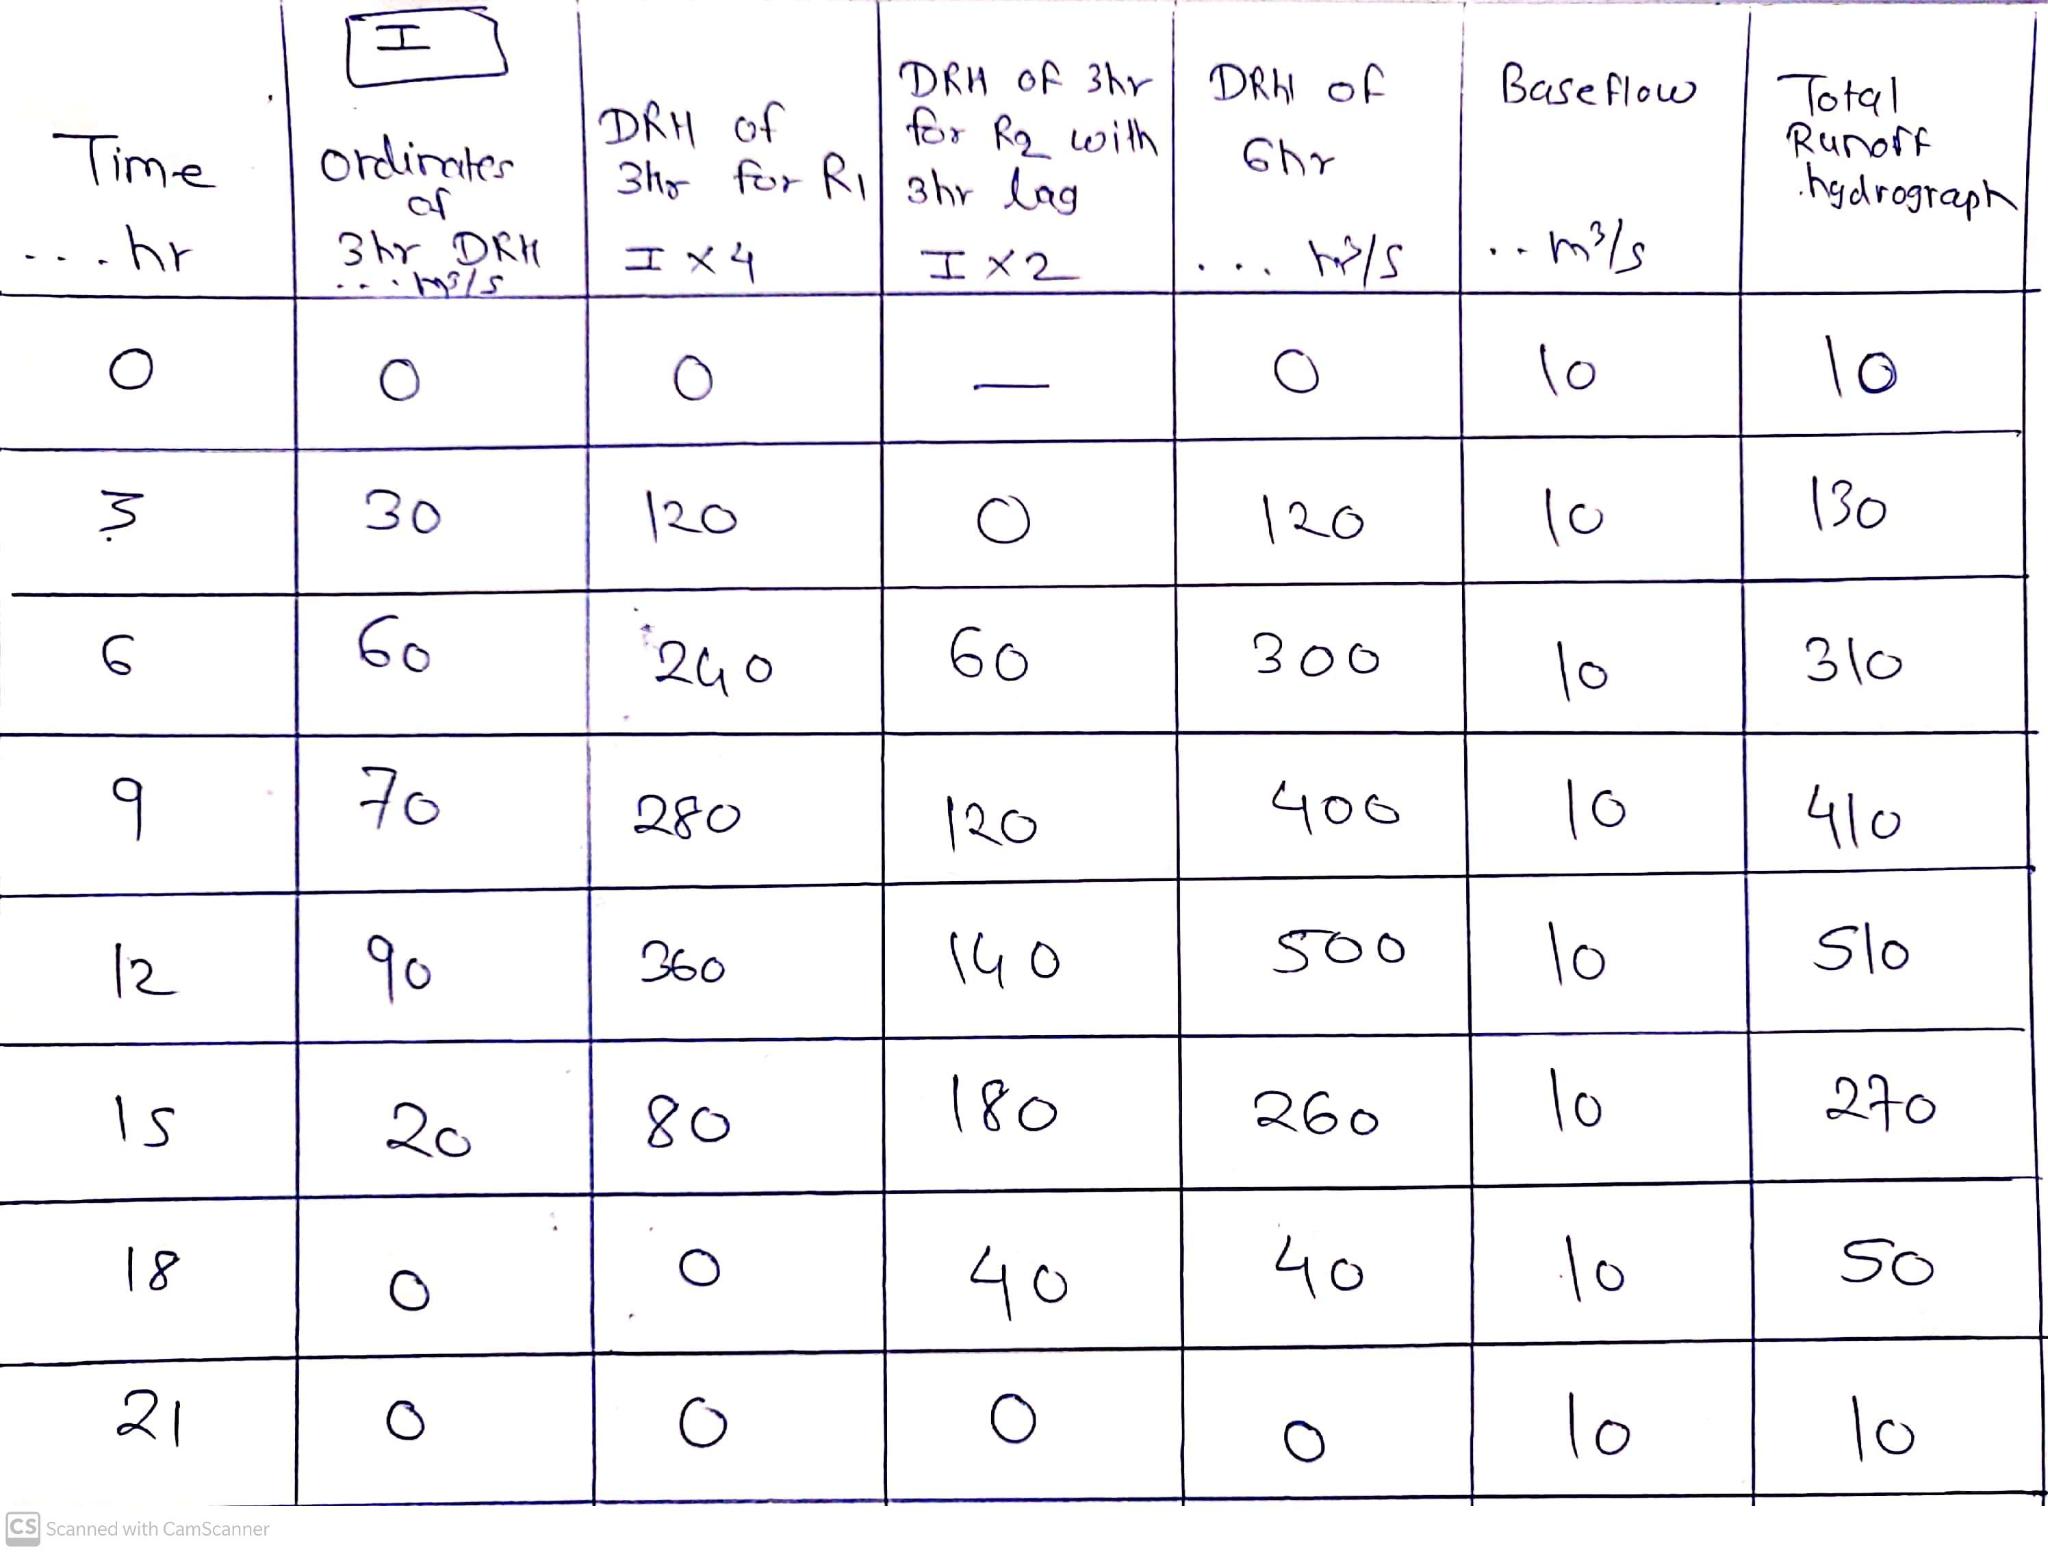 I
Time
...hr
ordinates
of
3hr DRH
...m³/s
DRH of
3Hr for R1
I x 4
DRH OF 3hr
for R2 with
3hr lag
I x 2
DRH of
6hr
... m³/s
Baseflow
..m³/s
Total
Runoff
hydrograph
0 0 0 — 0 10 10
3 30 120 0 120 10 130
6 60 240 60 300 10 310
9 70 280 120 400 10 410
12 90 360 140 500 10 510
15 20 80 180 260 10 270
18 0 0 40 40 10 50
21 0 0 0 0 10 10
CS Scanned with CamScanner